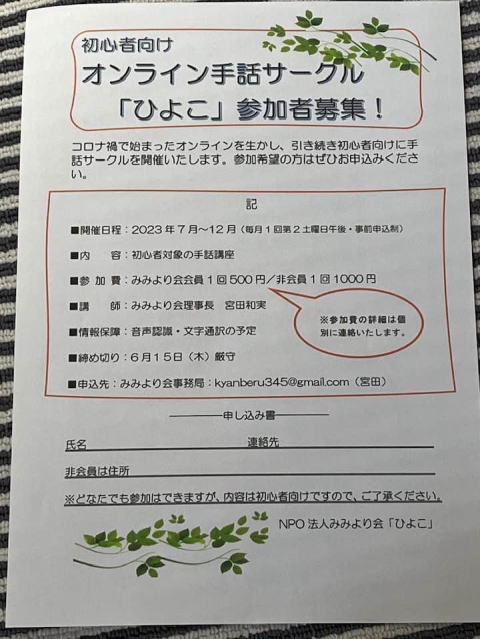 初心者向け
オンライン手話サークル
「ひよこ」参加者募集！
コロナ禍で始まったオンラインを生かし、引き続き初心者向けに手
話サークルを開催いたします。参加希望の方はぜひお申込みくださ
い。
記
■開催日程：2023年7月～12月（毎月1回第2土曜日午後・事前申込制）
■内　　容：初心者対象の手話講座
■参 加 費：みみより会会員1回500円／非会員1回1000円
■講　　師：みみより会理事長　宮田和実
※参加費の詳細は個
別に連絡いたします。
■情報保障：音声認識・文字通訳の予定
■締め切り：6月15日（木）厳守
■申込先：みみより会事務局：kyanberu345@gmail.com（宮田）
申し込み書
氏名　　　　　　連絡先
非会員は住所
※どなたでも参加はできますが、内容は初心者向けですので、ご了承ください。
NPO法人みみより会「ひよこ」